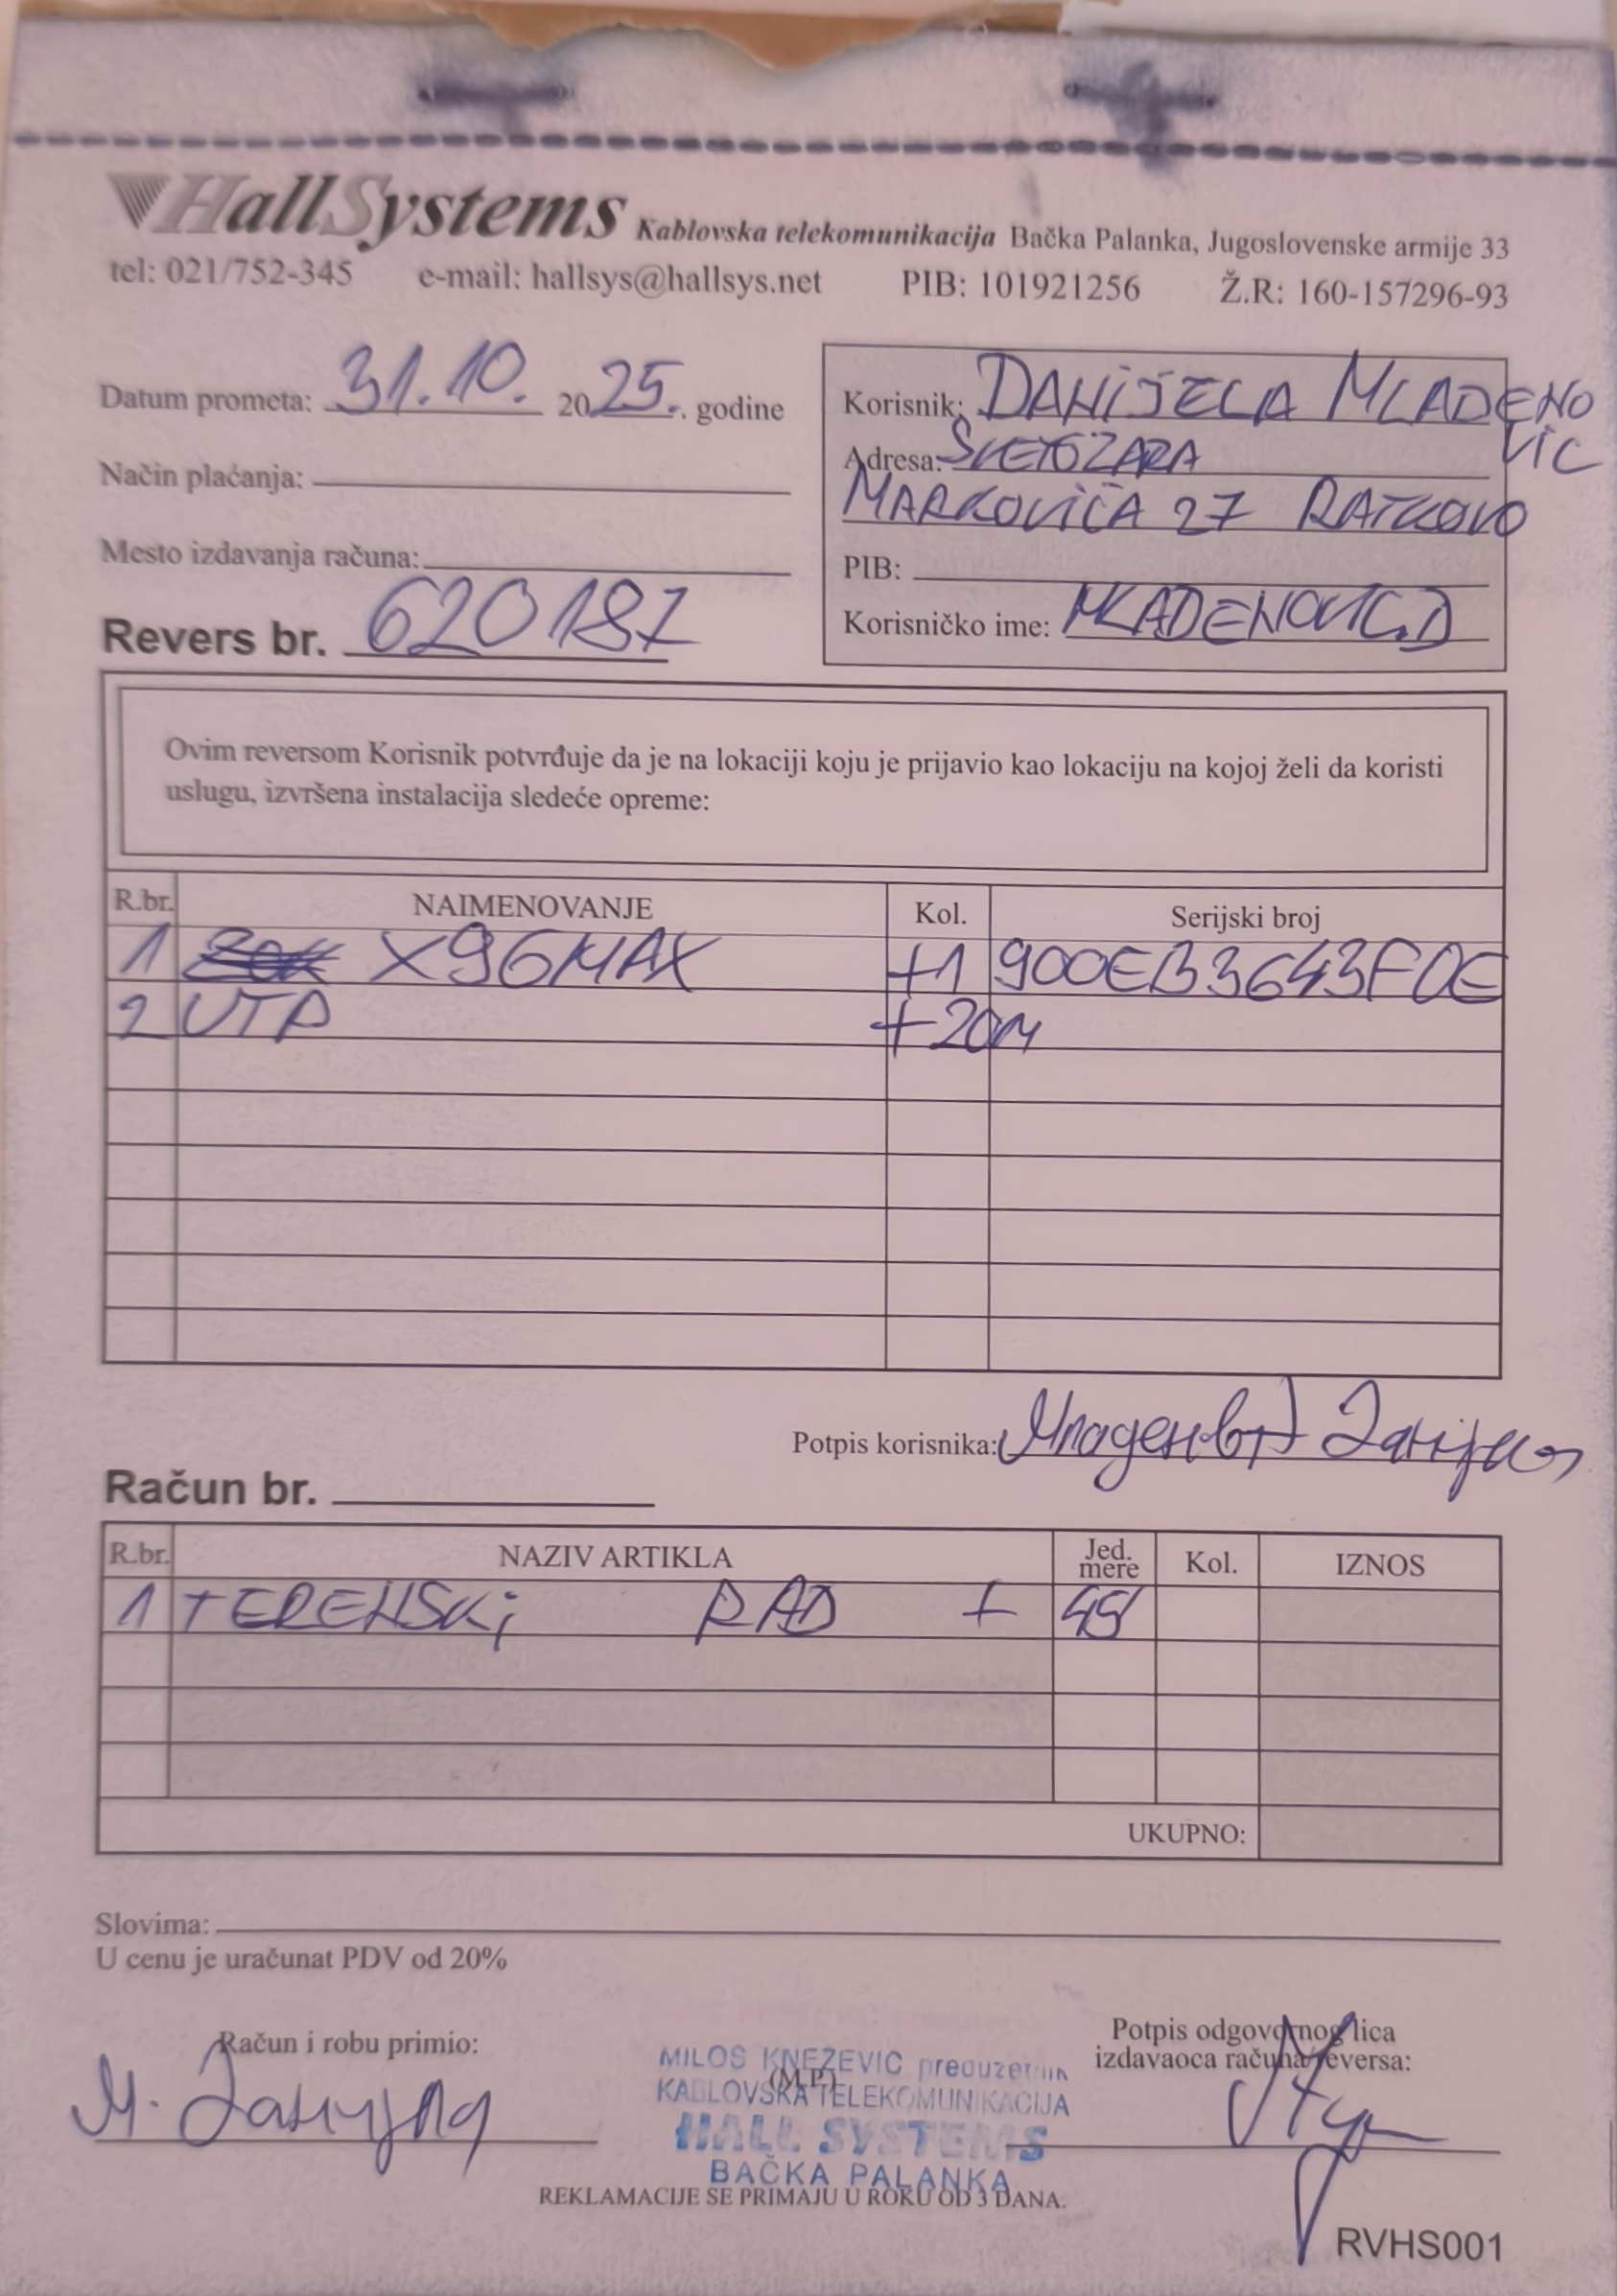 HallSystems Kablovska telekomunikacija Bačka Palanka, Jugoslovenske armije 33
tel: 021/752-345 e-mail: hallsys@hallsys.net PIB: 101921256 Ž.R: 160-157296-93
Datum prometa: 31.10. 2025. godine
Način plaćanja:
Mesto izdavanja računa:
Revers br. 620187
Korisnik: DANIJELA MLADENO
VIC
Adresa: SVETOZARA
MARKOVIĆA 27 RATKOVO
PIB:
Korisničko ime: MLADENOVIC.D
Ovim reversom Korisnik potvrđuje da je na lokaciji koju je prijavio kao lokaciju na kojoj želi da koristi
uslugu, izvršena instalacija sledeće opreme:
R.br. NAIMENOVANJE Kol. Serijski broj
1 X96MAX +1 900EB3643F0E
2 UTP +20M
Potpis korisnika: Младеновић Данијела
Račun br.
R.br. NAZIV ARTIKLA Jed. mere Kol. IZNOS
1 TERENSKI RAD + 45'
UKUPNO:
Slovima:
U cenu je uračunat PDV od 20%
Račun i robu primio:
М. Данијела
MILOS KNEZEVIC preduzetnik
(M.P.)
KABLOVSKA TELEKOMUNIKACIJA
HALL SYSTEMS
BAČKA PALANKA
Potpis odgovornog lica
izdavaoca računa/reversa:
REKLAMACIJE SE PRIMAJU U ROKU OD 3 DANA.
RVHS001